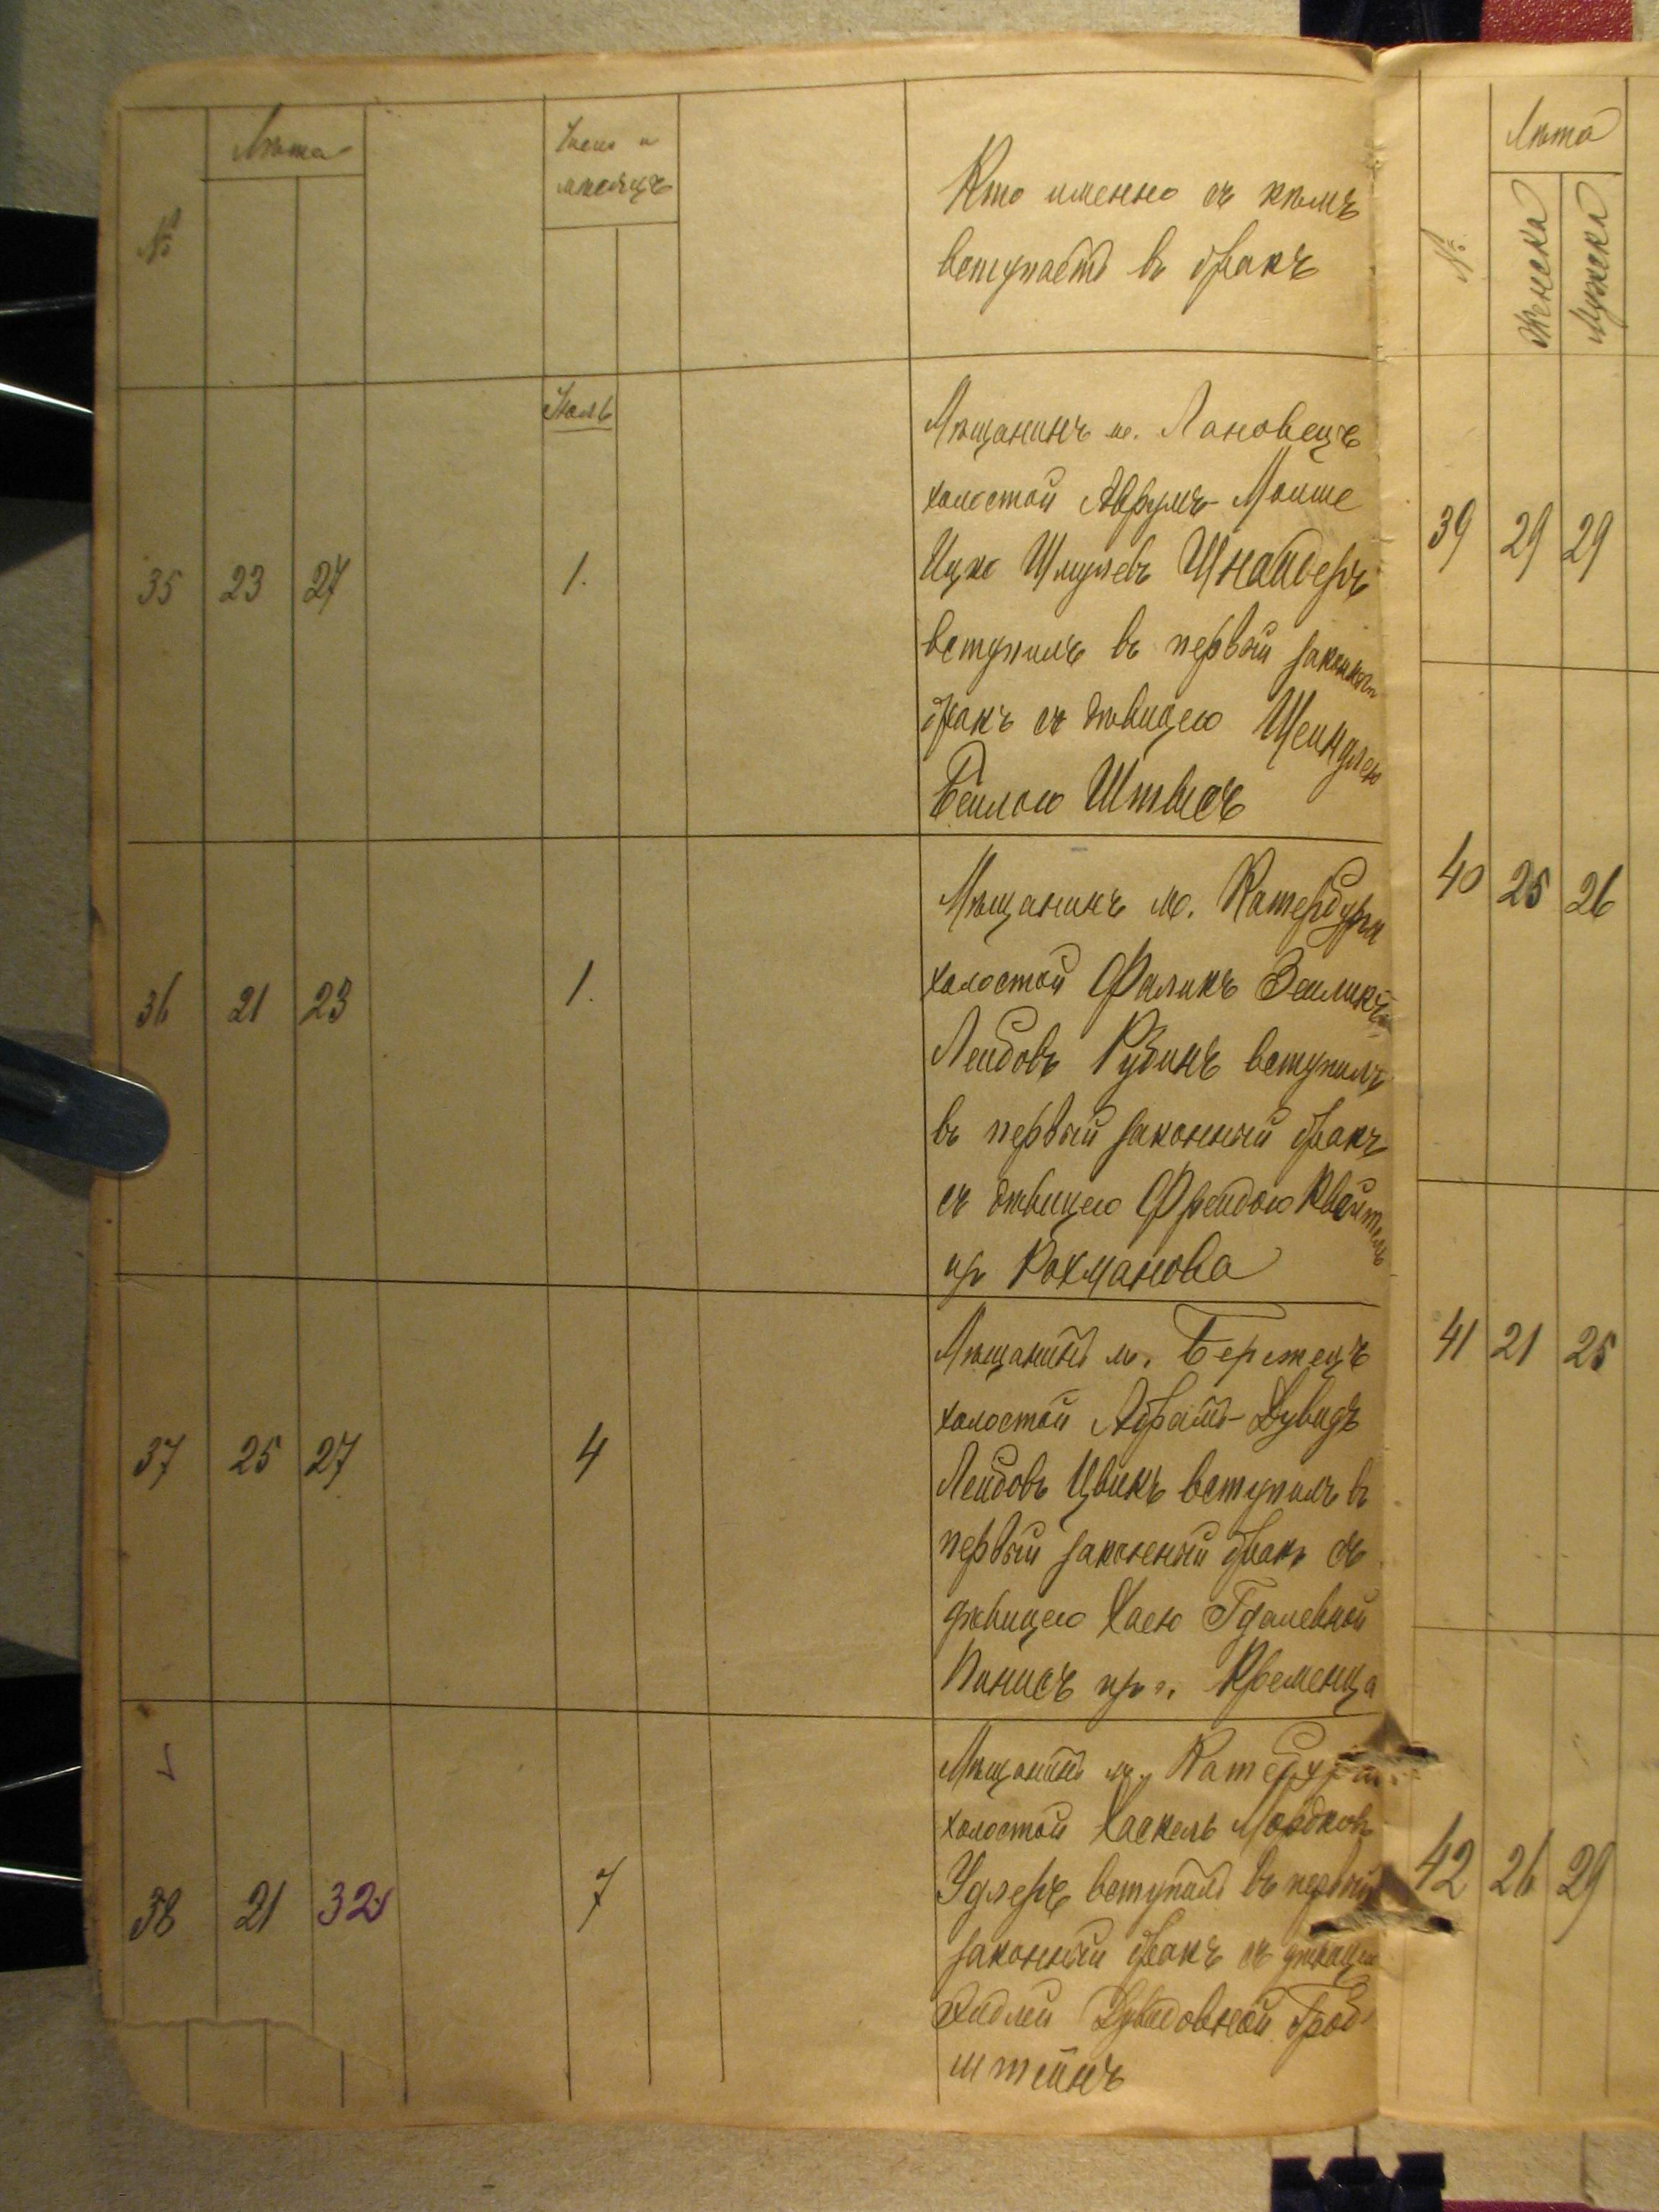 №
Лѣта
Число и
мѣсяцъ
Кто именно съ кѣмъ
вступаетъ въ бракъ
Іюль
35 23 27 1.
Мѣщанинъ м. Лановецъ
холостой Аврумъ-Мойше
Ицко Шмулевъ Шнайдеръ
вступилъ въ первый законный
бракъ съ дѣвицею Шейндлею
Бейлою
36 21 23 1.
Мѣщанинъ м. Катербурга
холостой Фаликъ Зейликъ
Лейбовъ Рубинъ вступилъ
въ первый законный бракъ
съ дѣвицею Фрейдою
из Рохманова
37 25 27 4
Мѣщанинъ м. Бережецъ
холостой Абрамъ-Дувидъ
Лейбовъ Цвикъ вступилъ въ
первый законный бракъ съ
дѣвицею Хаею Гдалевной
из г. Кременца
38 21 32 7
Мѣщанинъ м.
холостой Хаскель Мордковъ
Удлеръ вступилъ въ первый
законный бракъ съ дѣвицею
Дувидовной
штейнъ
№
Лѣта
Женска
Мужска
39 29 29
40 25 26
41 21 25
42 26 29